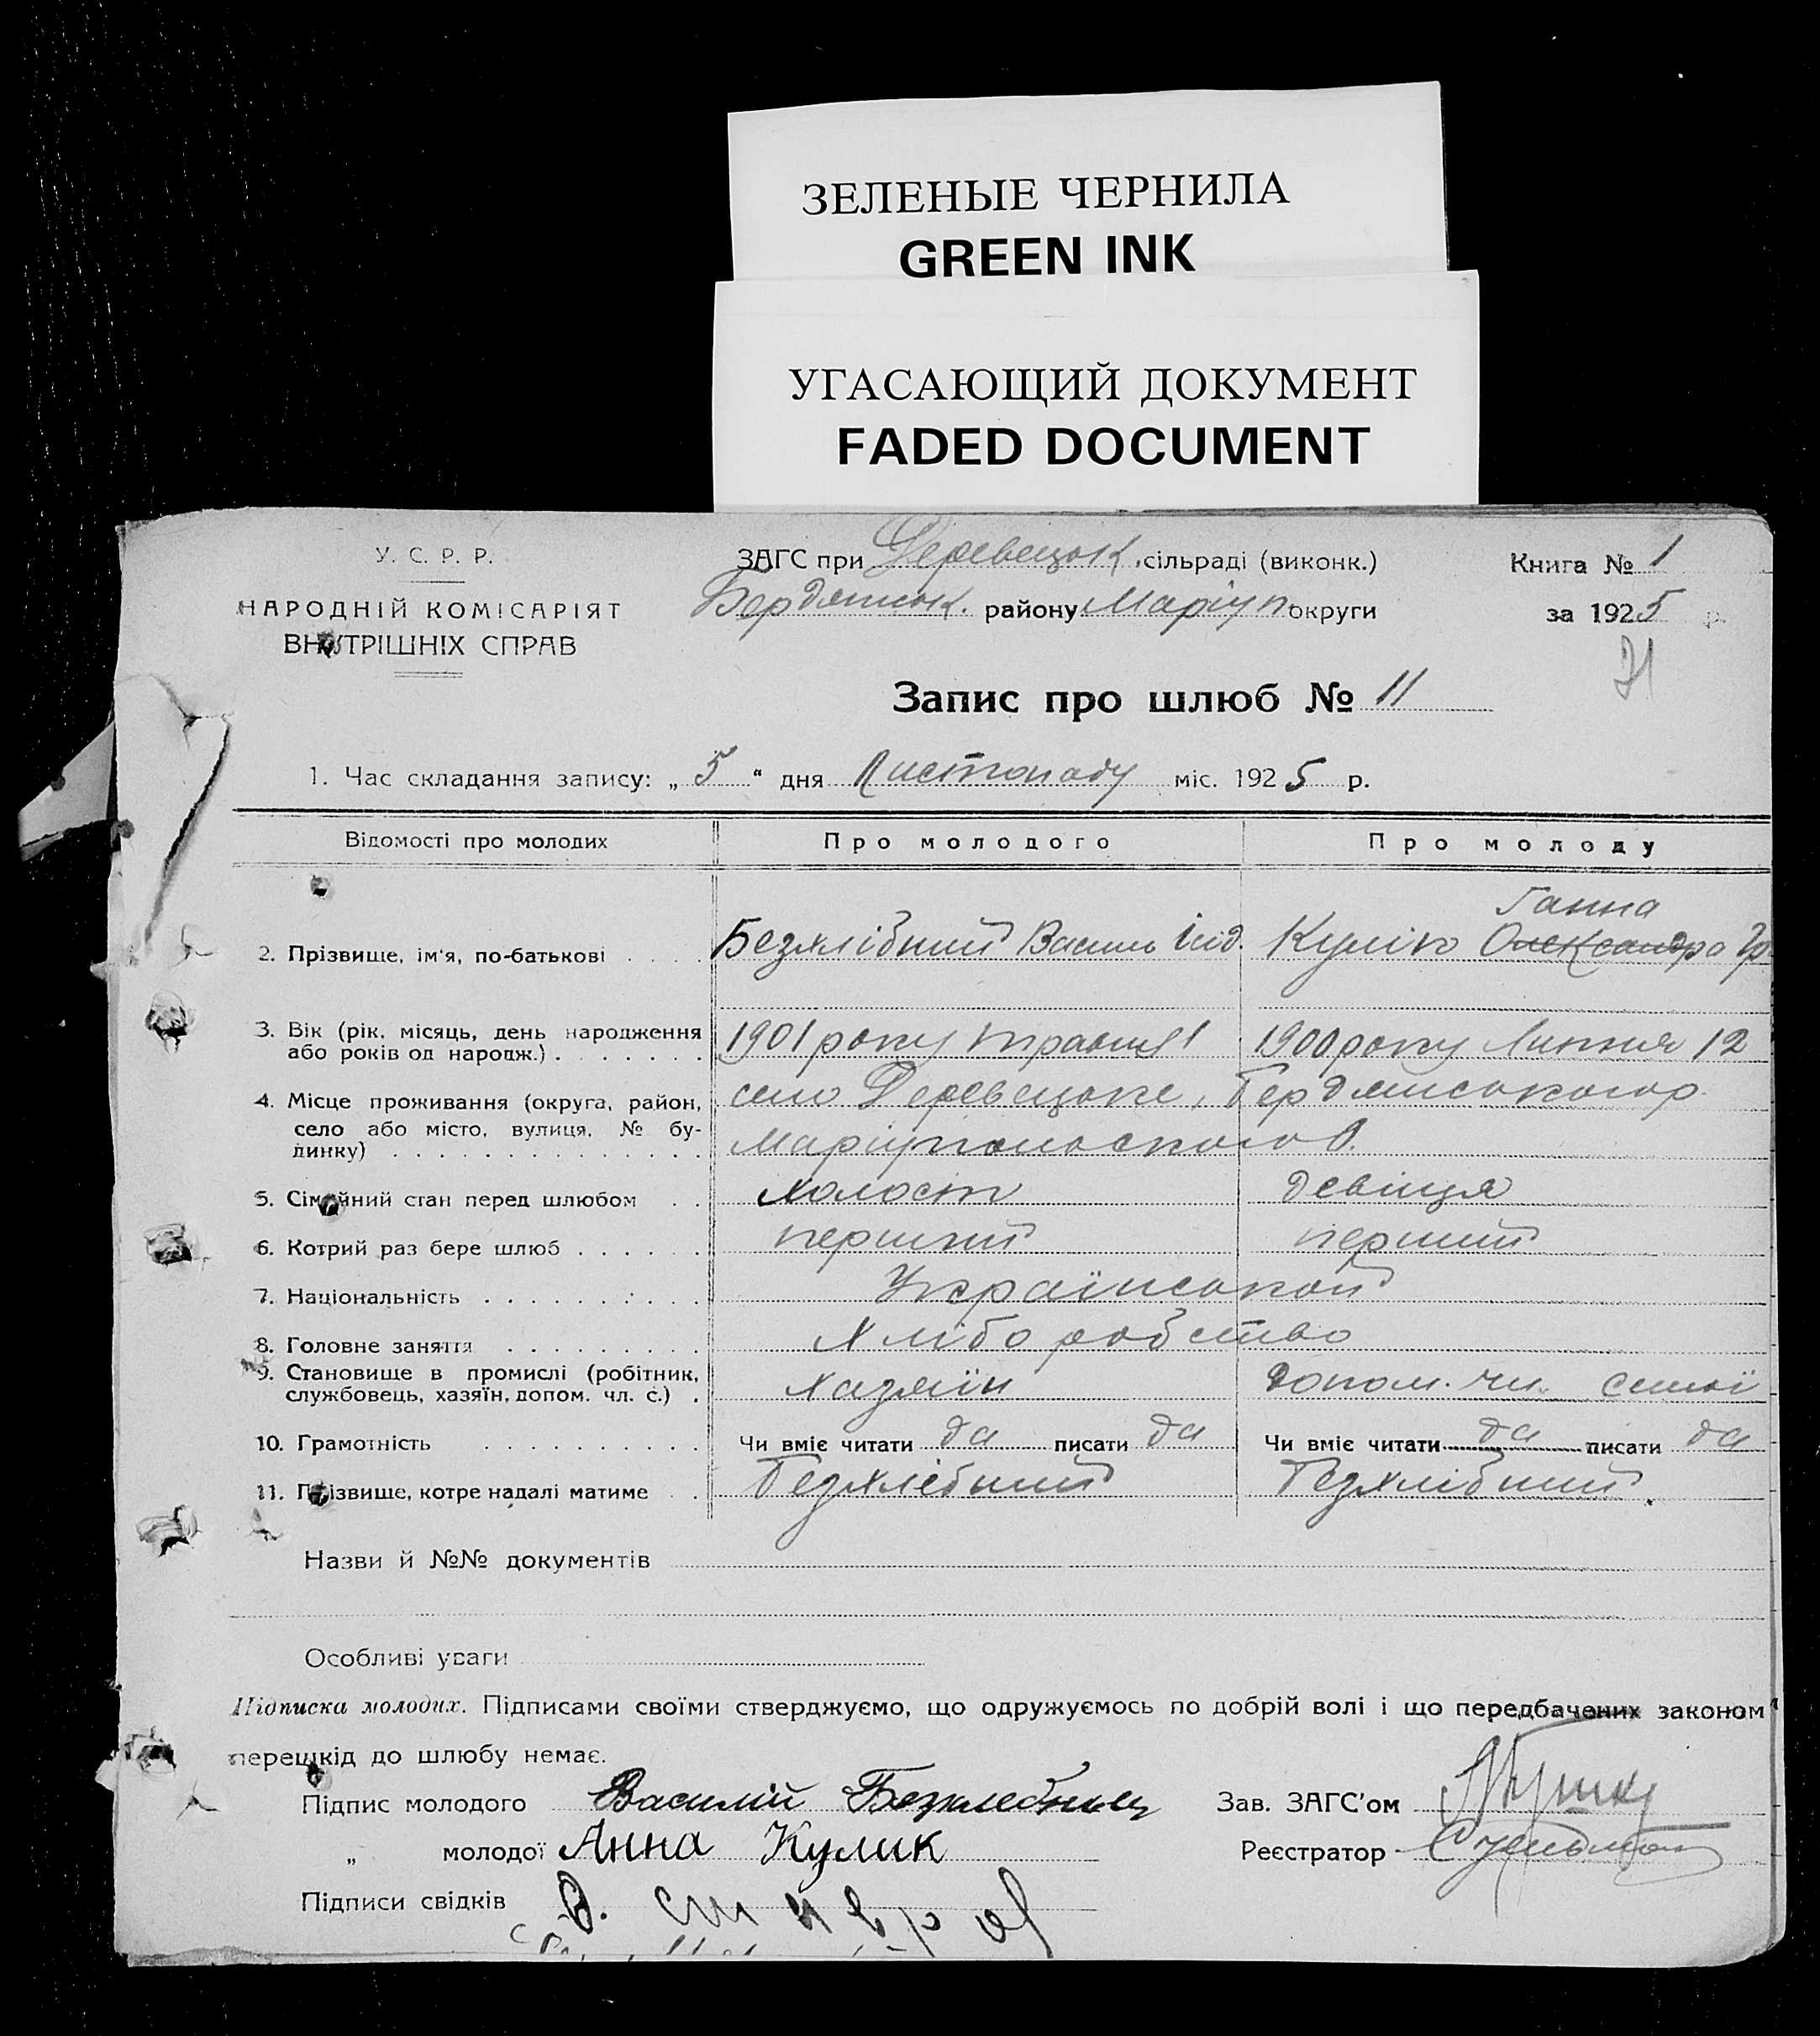 ЗЕЛЕНЫЕ ЧЕРНИЛА
GREEN INK
УГАСАЮЩИЙ ДОКУМЕНТ
FADED DOCUMENT
У. С. Р. Р.
НАРОДНІЙ КОМІСАРІЯТ
ВНУТРІШНІХ СПРАВ
ЗАГС при Деревецьк. сільраді (виконк.)
Бердянськ. району Маріуп. округи
Книга № 1
за 1925 р.
31
Запис про шлюб № 11
1. Час складання запису: „ 5 “ дня Листопаду міс. 1925 р.
Відомості про молодих Про молодого Про молоду
Ганна
2. Прізвище, ім'я, по-батькові . . . . Безхлібний Василь Ісід. Кулік Олександра Гр
3. Вік (рік, місяць, день народження 1901 року травня 1 1900 року Липня 12
або років од народж.) . . . . . . .
4. Місце проживання (округа, район, село Деревецьке, Бердянського р.
село або місто, вулиця, № бу- Маріупольського О.
динку) . . . . . . . . . . . . . .
5. Сімейний стан перед шлюбом . . холост девіця
6. Котрий раз бере шлюб . . . . . . перший перший
7. Національність . . . . . . . . . . Українськой
8. Головне заняття . . . . . . . . . Хліборобство
9. Становище в промислі (робітник,
службовець, хазяїн, допом. чл. с.) . Хазяїн допом. чл. семьї
10. Грамотність . . . . . . . . . . Чи вміє читати да писати да Чи вміє читати да писати да
11. Прізвище, котре надалі матиме . . Безхлібний Безхлібний.
Назви й №№ документів
Особливі уваги
Підписка молодих. Підписами своїми стверджуємо, що одружуємось по добрій волі і що передбачених законом
перешкід до шлюбу немає.
Підпис молодого Василий Безхлебный Зав. ЗАГС'ом
„ молодої Анна Кулик Реєстратор
Підписи свідків